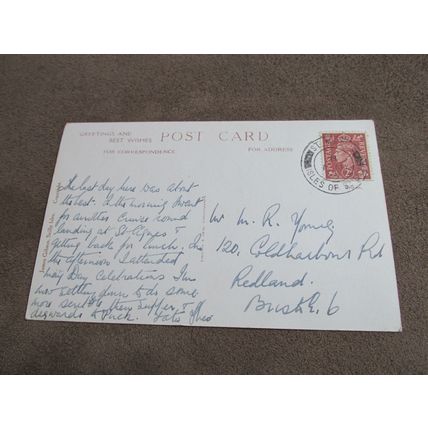 GREETINGS AND
BEST WISHES
POST CARD
FOR CORRESPONDENCE
FOR ADDRESS
ISLES OF
The last day here was about
the best. In the morning I went
for another cruise round
landing at St Agnes &
getting back for lunch. In
the afternoon I attended
May Day Celebrations I'm
now settling down to do some
more before supper &
afterwards to pack.
Mr M. R. Young,
120, Coldharbour Rd
Redland.
Bristol. 6